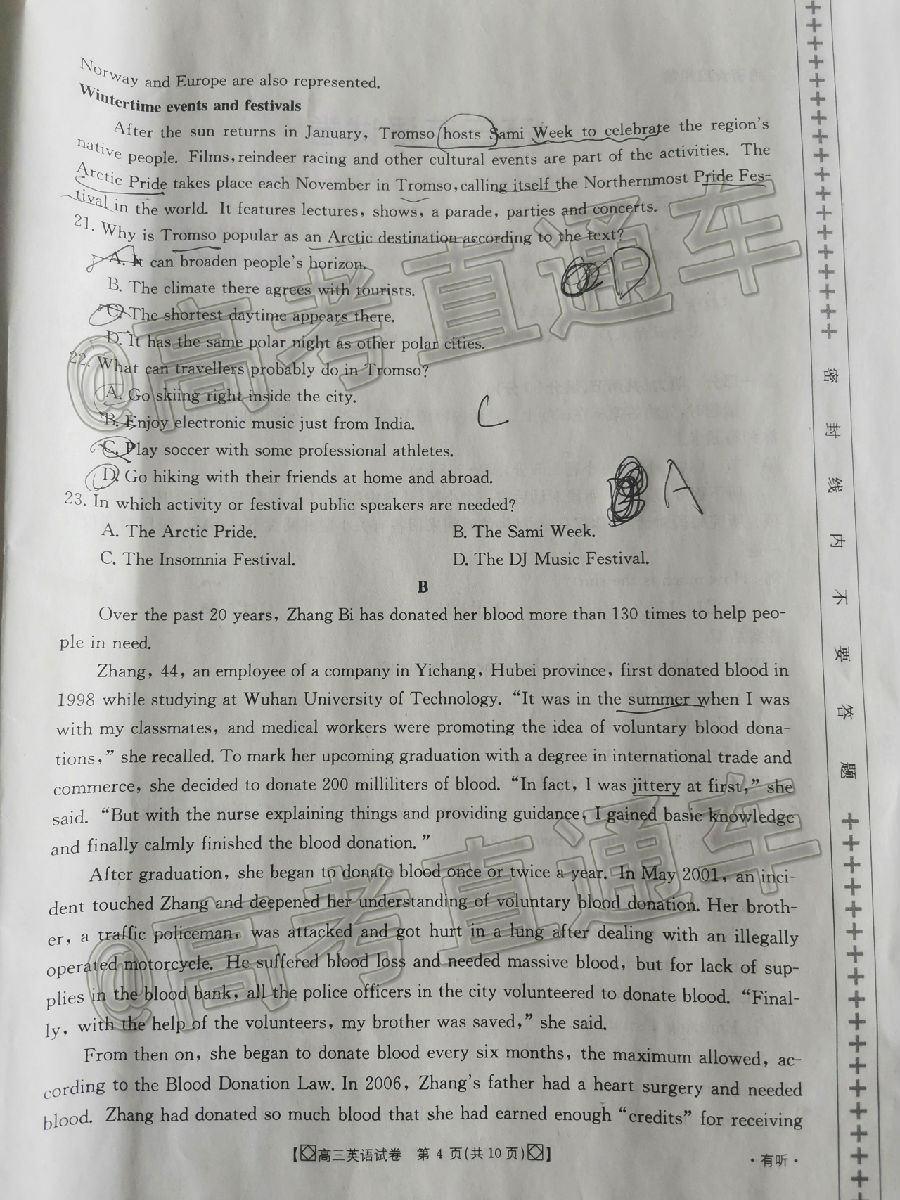 Norway and Europe are also represented.
Wintertime events and festivals
After the sun returns in January, Tromso hosts Sami Week to celebrate the region's
native people. Films, reindeer racing and other cultural events are part of the activities. The
Arctic Pride takes place each November in Tromso, calling itself the Northernmost Pride Fes-
tival in the world. It features lectures, shows, a parade, parties and concerts.
21. Why is Tromso popular as an Arctic destination according to the text?
A. It can broaden people's horizon.
B. The climate there agrees with tourists.
C. The shortest daytime appears there.
D. It has the same polar night as other polar cities.
D
22. What can travellers probably do in Tromso?
A. Go skiing right inside the city.
B. Enjoy electronic music just from India.
C. Play soccer with some professional athletes.
D. Go hiking with their friends at home and abroad.
C
23. In which activity or festival public speakers are needed?
A. The Arctic Pride. B. The Sami Week.
C. The Insomnia Festival. D. The DJ Music Festival.
A
B
Over the past 20 years, Zhang Bi has donated her blood more than 130 times to help peo-
ple in need.
Zhang, 44, an employee of a company in Yichang, Hubei province, first donated blood in
1998 while studying at Wuhan University of Technology. "It was in the summer when I was
with my classmates, and medical workers were promoting the idea of voluntary blood dona-
tions," she recalled. To mark her upcoming graduation with a degree in international trade and
commerce, she decided to donate 200 milliliters of blood. "In fact, I was jittery at first," she
said. "But with the nurse explaining things and providing guidance, I gained basic knowledge
and finally calmly finished the blood donation."
After graduation, she began to donate blood once or twice a year. In May 2001, an inci-
dent touched Zhang and deepened her understanding of voluntary blood donation. Her broth-
er, a traffic policeman, was attacked and got hurt in a lung after dealing with an illegally
operated motorcycle. He suffered blood loss and needed massive blood, but for lack of sup-
plies in the blood bank, all the police officers in the city volunteered to donate blood. "Final-
ly, with the help of the volunteers, my brother was saved," she said.
From then on, she began to donate blood every six months, the maximum allowed, ac-
cording to the Blood Donation Law. In 2006, Zhang's father had a heart surgery and needed
blood. Zhang had donated so much blood that she had earned enough "credits" for receiving
【高三英语试卷 第 4 页(共 10 页)】
·有听·
密封线内不要答题
@高考直通车
@高考直通车